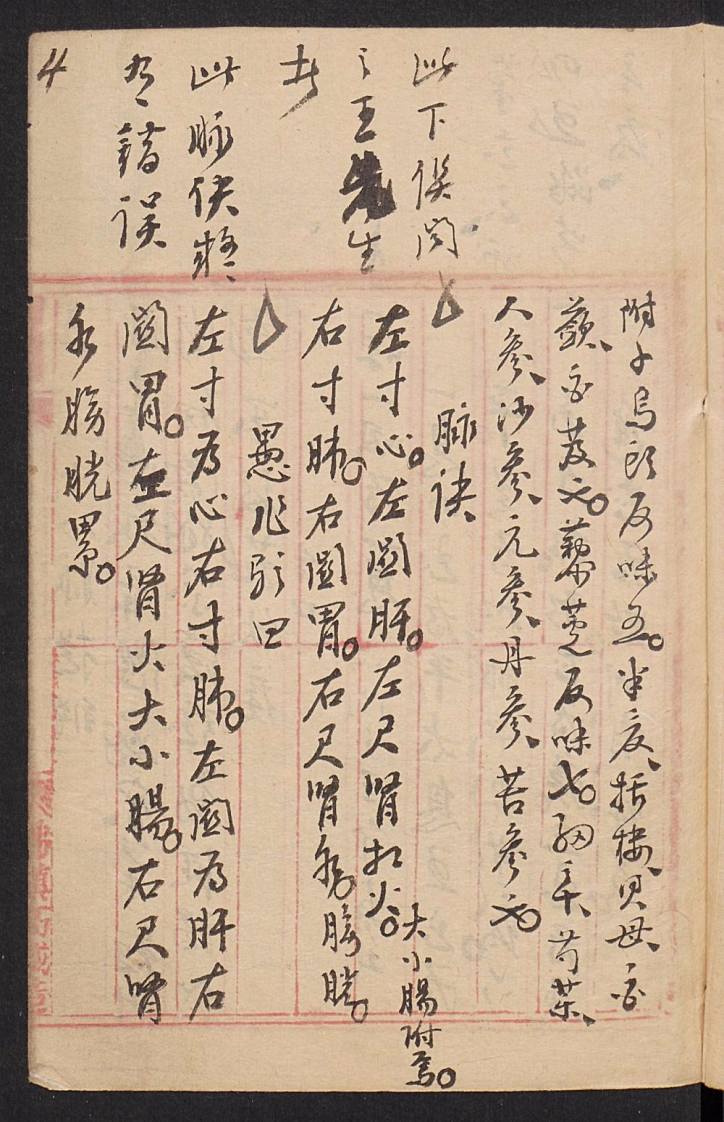 附子烏頭反味五。半夏、括楼、貝母、白
蘞、白芨 。藜蘆反味七。細辛、芍薬、
人參、沙參、元參、丹參、苦參
脉訣
左寸心。左関肝。左尺腎 火。大小腸附焉。
右寸肺。右関胃。右尺腎 膀胱。
愚 曰
左寸为心右寸肺。左関为肝右
関胃。左尺腎火大小腸。右尺腎
膀胱累。
此下俟问
之王先生
此脉訣
有錯误
4